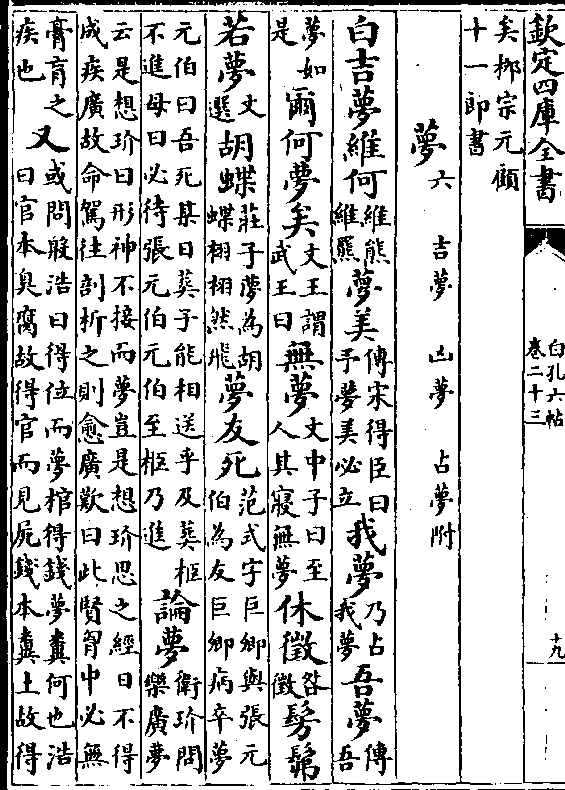 欽定四庫全書
白孔六帖
卷二十三
十九
矣栁宗元顧
十一郎書
夢六 吉夢 凶夢 占夢附
白吉夢維何維熊維羆夢美傳宋得臣曰予夢美必立我夢乃占我夢吾夢傳吾
夢如是爾何夢矣文王謂武王曰無夢文中子曰至人其寢無夢休徵咎徵髣髴
若夢文選胡蝶莊子夢為胡蝶栩栩然飛夢友死范式字巨卿與張元伯為友巨卿病卒夢
元伯曰吾死某日葬子能相送乎及葬柩不進母曰必待張元伯元伯至柩乃進論夢衛玠問樂廣夢
云是想玠曰形神不接而夢豈是想玠思之經日不得成疾廣故命駕往剖析之則愈廣歎曰此賢胷中必無
膏肓之疾也又或問殷浩曰得位而夢棺得錢夢糞何也浩曰官本臭腐故得官而見屍錢本糞土故得